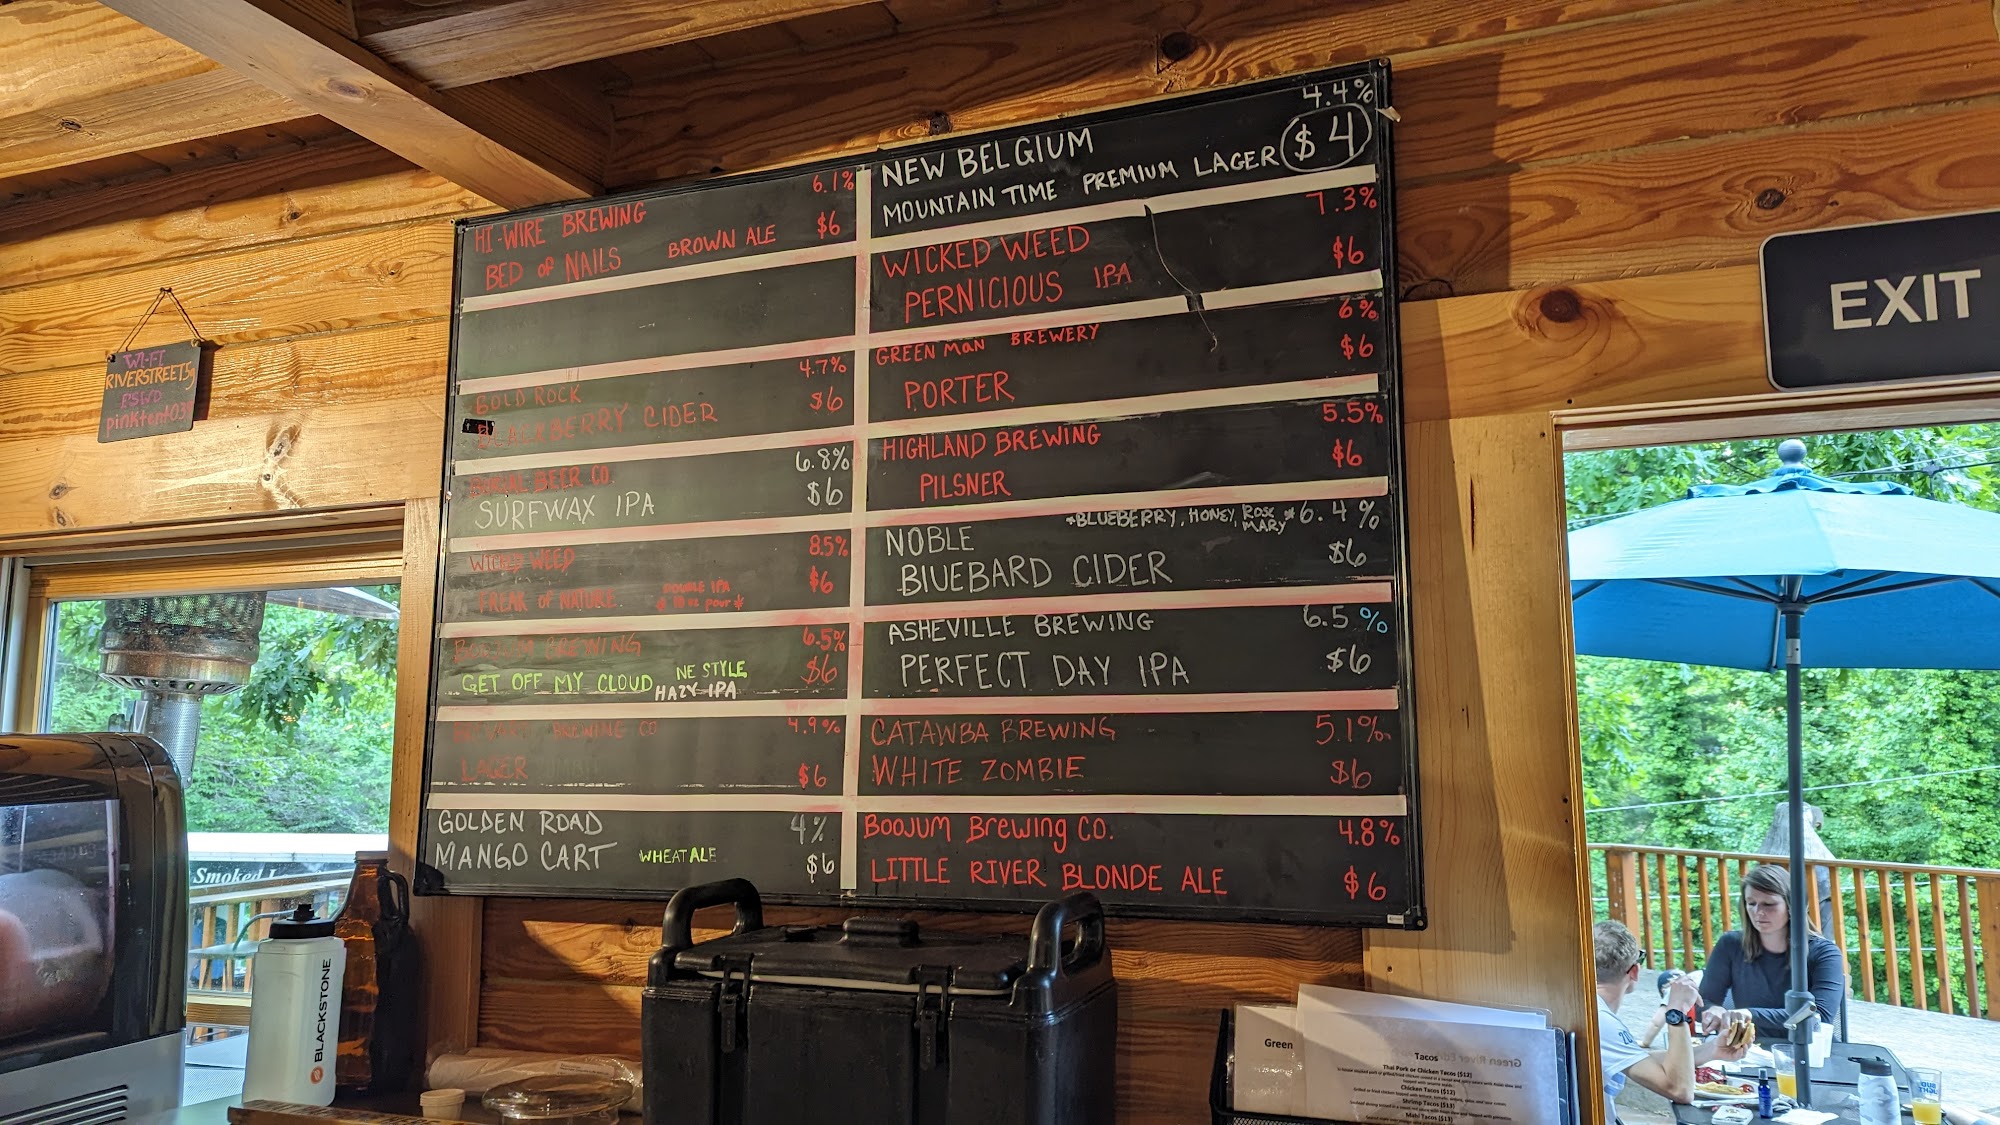 6.1%
HI-WIRE BREWING
BED OF NAILS BROWN ALE $6
4.7%
GOLD ROCK
BLACKBERRY CIDER $6
BURIAL BEER CO. 6.8%
SURFWAX IPA $6
WICKED WEED 8.5%
FREAK OF NATURE DOUBLE IPA $6
* 10 oz POUR *
BOOJUM BREWING 6.5%
GET OFF MY CLOUD NE STYLE $6
HAZY IPA
BREWING CO 4.9%
LAGER $6
GOLDEN ROAD 4%
MANGO CART WHEAT ALE $6
4.4%
NEW BELGIUM
MOUNTAIN TIME PREMIUM LAGER $4
7.3%
WICKED WEED
PERNICIOUS IPA $6
6%
GREEN MAN BREWERY
PORTER $6
5.5%
HIGHLAND BREWING
PILSNER $6
NOBLE *BLUEBERRY, HONEY, ROSE MARY* 6.4%
BLUEBARD CIDER $6
ASHEVILLE BREWING 6.5%
PERFECT DAY IPA $6
CATAWBA BREWING 5.1%
WHITE ZOMBIE $6
BOOJUM BREWING CO. 4.8%
LITTLE RIVER BLONDE ALE $6
EXIT
WI-FI
RIVERSTREET5g
PSWD
pinktent035
Smoked
BLACKSTONE
Green
Tacos
Thai Pork or Chicken Tacos ($12)
Chicken Tacos ($12)
Shrimp Tacos ($13)
Mahi Tacos ($13)
BUD
LIGHT